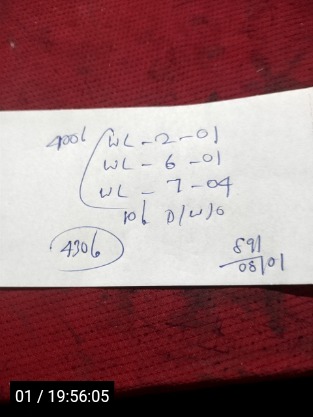 400b WL - 2 - 01
WL - 6 - 01
WL - 7 - 04
10b D/W/O
430b
891
08/01
01 / 19:56:05